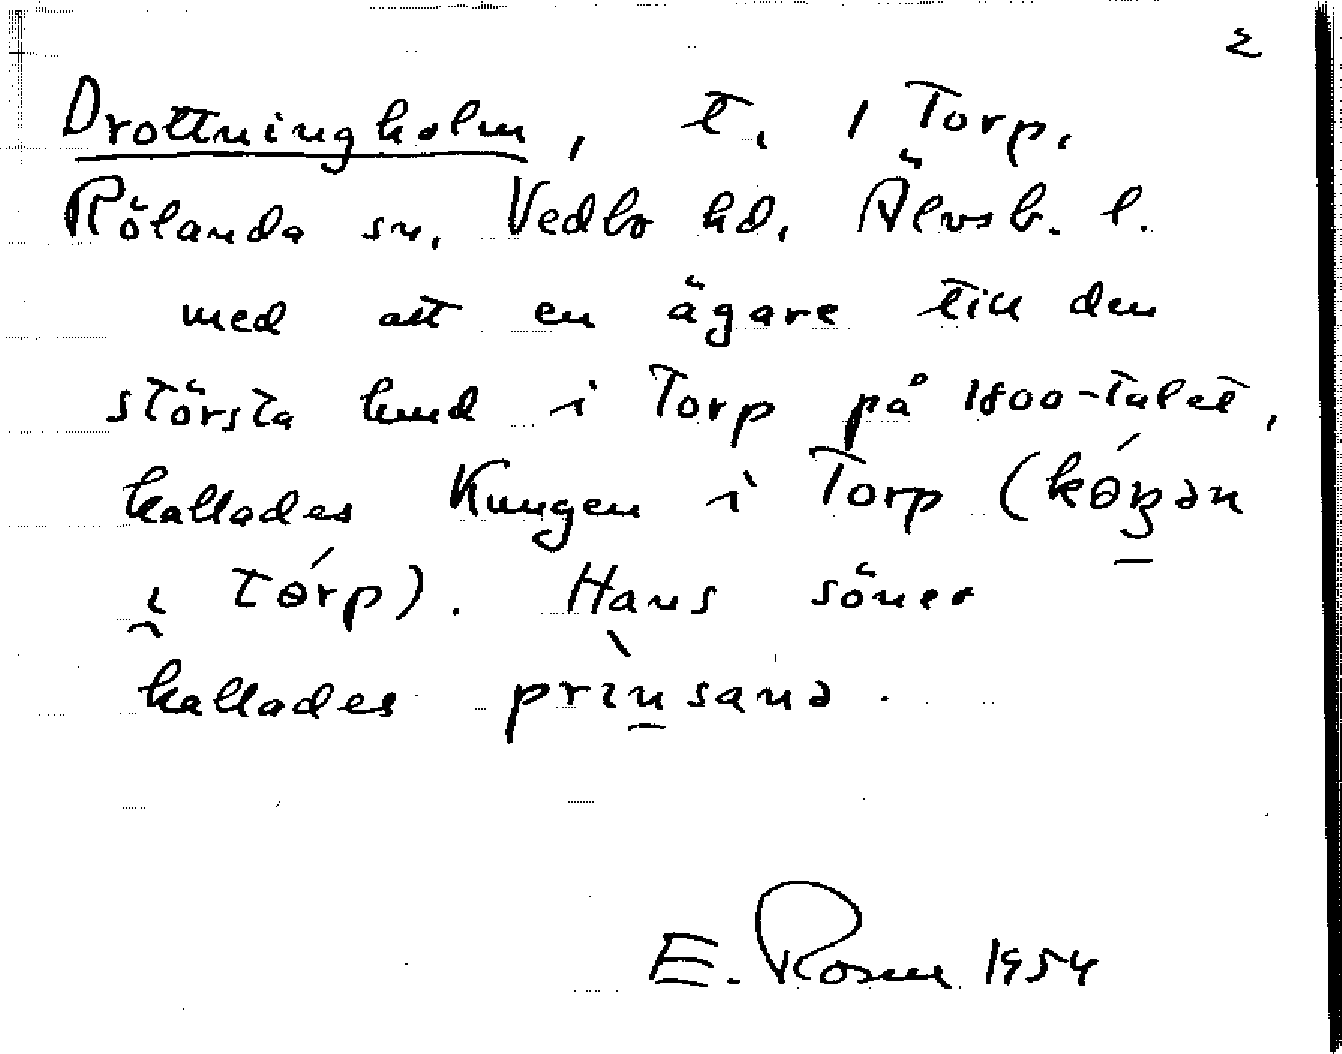 2
Drottningholm, t. 1 Torp.
Rölanda sn, Vedbo hd, Älvsb. l.
med att en ägare till den
största hmd i Torp på 1800-talet,
kallades Kungen i Torp (kɵ́ŋən
i tɵ́rp). Hans söner
kallades prìnsanə.
E. Rosen 1954